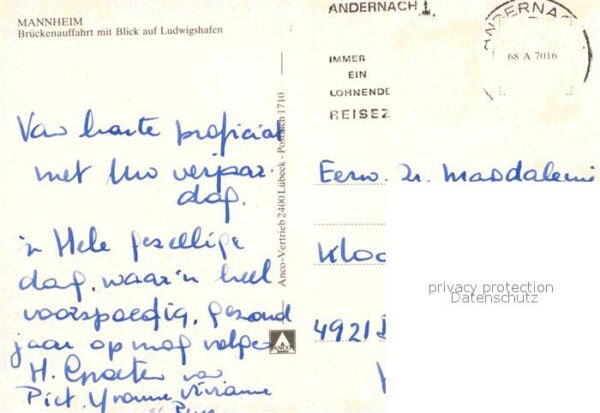 MANNHEIM
Brückenauffahrt mit Blick auf Ludwigshafen
Van harte proficiat
met Uw verjaar-
dag.
'n Hele gezellige
dag, waar 'n heel
voorspoedig, gezond
jaar op mag volgen
H. Groeten van
Piet, Yvonne, Vivianne
Anco-Vertrieb 2400 Lübeck - Postfach 1710
ANCO
ANDERNACH
IMMER
EIN
LOHNENDE
REISEZ
ANDERNAC
68 A 7016
Eerw. Zr. Magdalena
Kloo
4921
privacy protection
Datenschutz